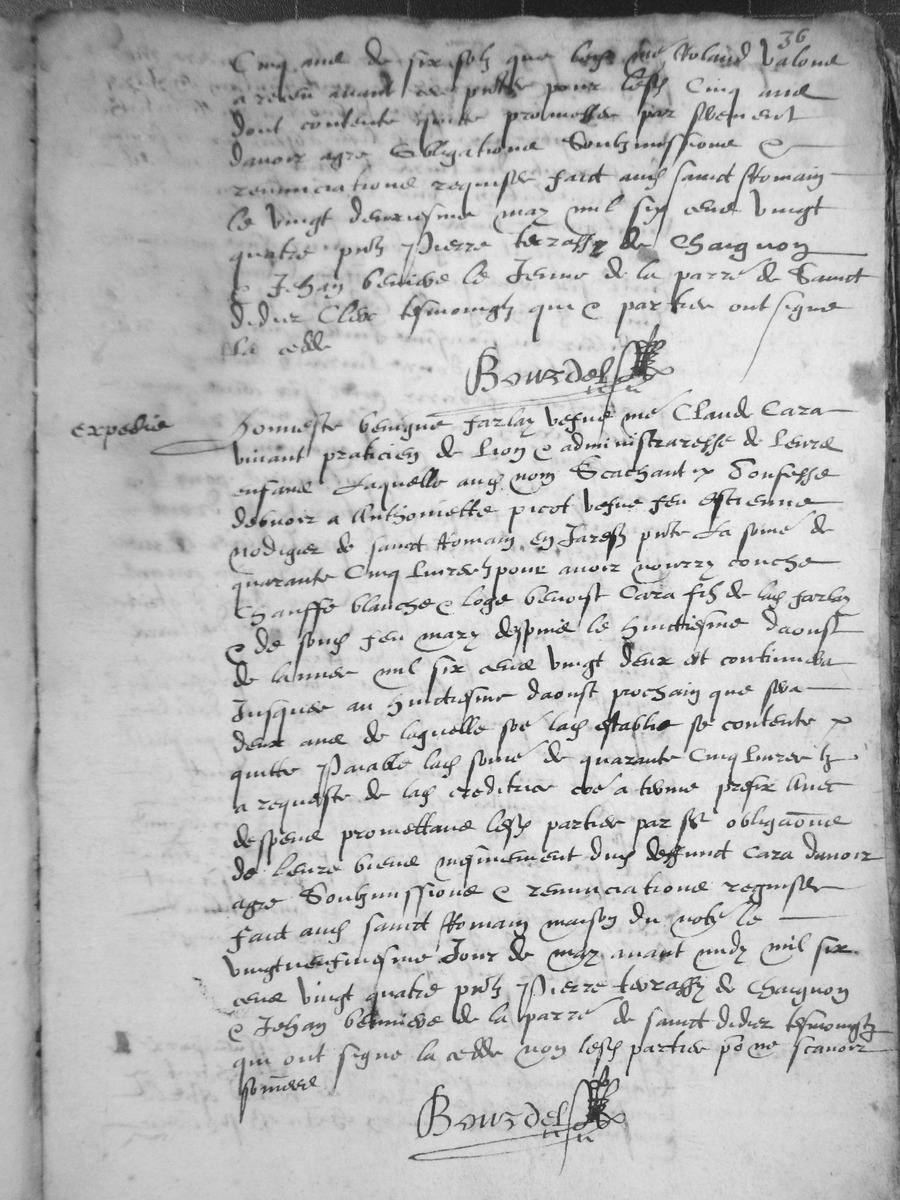 36
Cinq ans de six solz que led me Roland Valous
a receu avant ces pntes pour lesd Cinq ans
dont contente quitte promettre par serment
davoir agre obligations Soubzmissions &
renunciations requises faict aud sainct Romain
le vingt deuxiesme may mil six cens vingt
quatre pntz Pierre terrasse de Chaignon
& Jehan benieve le Jeune de la parre de Sainct
didier Clerc tesmoingz qui & parties ont signe
la cedde
Bourdel
expedie
Honneste benigne farlay vefve me Claude Cara
vivant praticien de Lion & administraresse de leurs
enfans Laquelle aud nom Scachant Confesse
debvoir a Anthoinette picot vefve feu estienne
nodigier de sainct Romain en Jarest pnte La some de
quarante Cinq livres pour avoir nourry couche
Chauffe blanche & loge benoist Cara filz de lad farlay
& de soud feu mary despuis le huictiesme daoust
de lannee mil six cens vingt deux et continuera
Jusques au huictiesme daoust prochain que sera
deux ans de laquelle soe lad establie se contente
quitte Paiable lad some de quarante Cinq livres tz
a requeste de lad creditrice coe a terme prefix avec
despens promettans lesd parties par st obligaone
de leurs biens mesmement dud deffunct Cara davoir
agre Soubzmissions & renunciations requises
faict aud sainct Romain maison du notre le
vingtneufviesme Jour de may avant midy mil six
cens vingt quatre pntz Pierre terrasse de Chaignon
& Jehan benieve de la parre de sainct didier tesmoingtz
qui ont signe la cedde non lesd parties po ne scavoir
somees
Bourdel